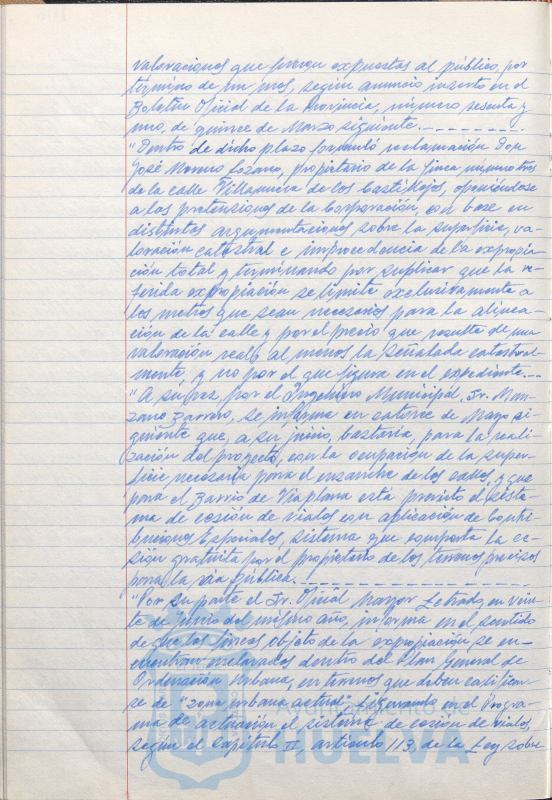 valoraciones que fueron expuestas al público, por
término de un mes, según anuncio inserto en el
Boletín Oficial de la Provincia, número sesenta y
uno, de quince de Marzo siguiente.
"Dentro de dicho plazo formuló reclamación Don
José Moreno Lozano, propietario de la finca número tres
de la calle Villanueva de los Castillejos, oponiéndose
a las pretensiones de la Corporación, con base en
distintas argumentaciones sobre la superficie, va-
loración catastral e improcedencia de la expropia-
ción total y terminando por suplicar que la re-
ferida expropiación se limite exclusivamente a
los metros que sean necesarios para la alinea-
ción de la calle y por el precio que resulte de una
valoración real o al menos la señalada catastral-
mente, y no por el que figura en el expediente.
"A su vez, por el Ingeniero Municipal, Sr. Man-
zano Barrero, se informa en catorce de Mayo si-
guiente que, a su juicio, bastaría, para la reali-
zación del proyecto, con la ocupación de la super-
ficie necesaria para el ensanche de las calles, y que
para el Barrio de Viaplana está previsto el siste-
ma de cesión de viales con aplicación de Contri-
buciones Especiales, sistema que comporta la ce-
sión gratuita por el propietario de los terrenos precisos
para la vía pública.
"Por su parte el Sr. Oficial Mayor Letrado, en vein-
te de Junio del mismo año, informa en el sentido
de que las fincas objeto de la expropiación se en-
cuentran enclavadas dentro del Plan General de
Ordenación Urbana, en terrenos que deben calificar-
se de "zona urbana actual" figurando en el Progra-
ma de actuación el sistema de cesión de viales,
según el Capítulo II, artículo 113 de la Ley sobre
HUELVA